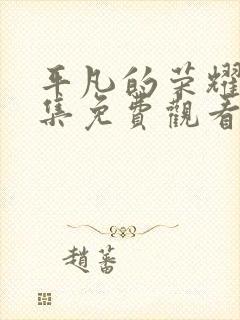 平凡的荣耀
集免費觀看
趙蕃